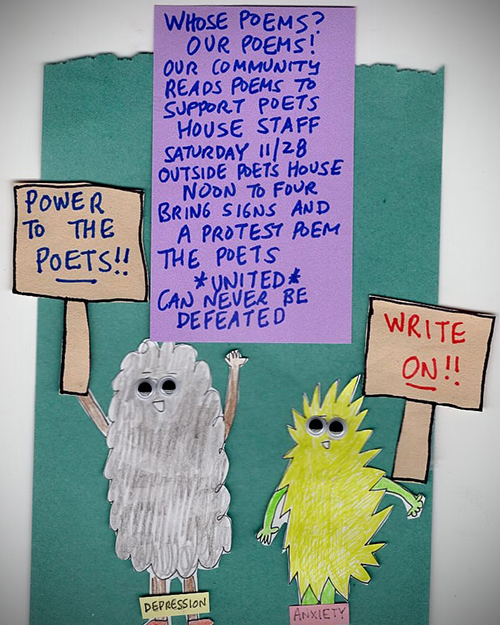 WHOSE POEMS?
OUR POEMS!
OUR COMMUNITY
READS POEMS TO
SUPPORT POETS
HOUSE STAFF
SATURDAY 11/28
OUTSIDE POETS HOUSE
NOON TO FOUR
BRING SIGNS AND
A PROTEST POEM
THE POETS
*UNITED*
CAN NEVER BE
DEFEATED
POWER
TO THE
POETS!!
WRITE
ON!!
DEPRESSION
ANXIETY